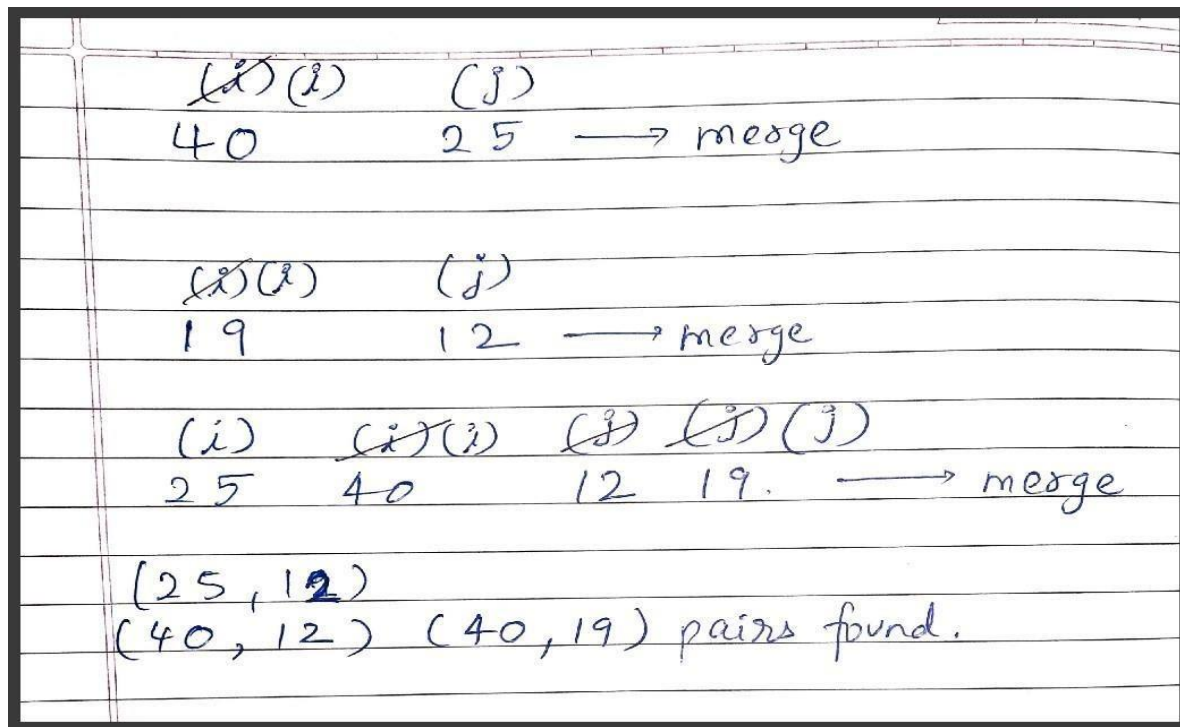 (i) (i) (j)
40 25 → merge
(i) (i) (j)
19 12 → merge
(i) (i) (i) (j) (j) (j)
25 40 12 19. → merge
(25, 12)
(40, 12) (40, 19) pairs found.